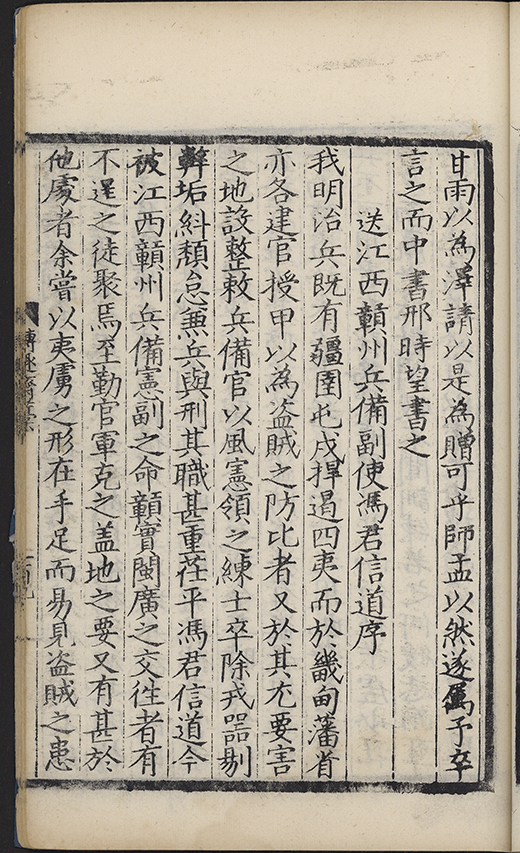 甘雨以為澤請以是為贈可乎師孟以然遂屬予卒
言之而中書邢時望書之
送江西贑州兵備副使馮君信道序
我明治兵既有疆圉屯戍捍遏四夷而於畿甸藩省
亦各建官授甲以為盗賊之防比者又於其尤要害
之地設整敕兵備官以風憲領之練士卒除戎器剔
弊垢糾頹怠兼兵與刑其職甚重茌平馮君信道今
被江西贑州兵備憲副之命贑實閩廣之交徃者有
不逞之徒聚焉至勤官軍克之盖地之要又有甚於
他處者余嘗以夷虜之形在手足而易見盗賊之患